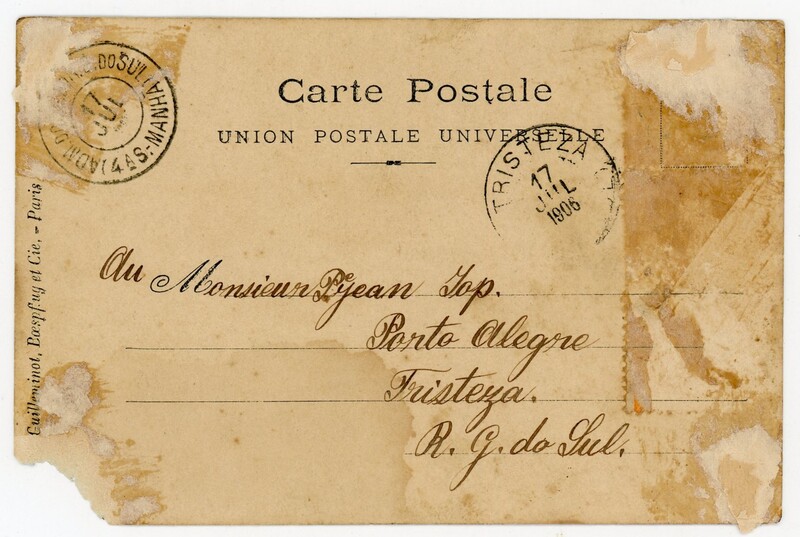 Carte Postale
UNION POSTALE UNIVERSELLE
DO SUL
(4ª S.-MANHÃ)
17
JUL
TRISTEZA
17
JUL
1906
Guilleminot, Bœspflug et Cie. - Paris
Au Monsieur Jean Jop.
Porto Alegre
Tristeza.
R. G. do Sul.